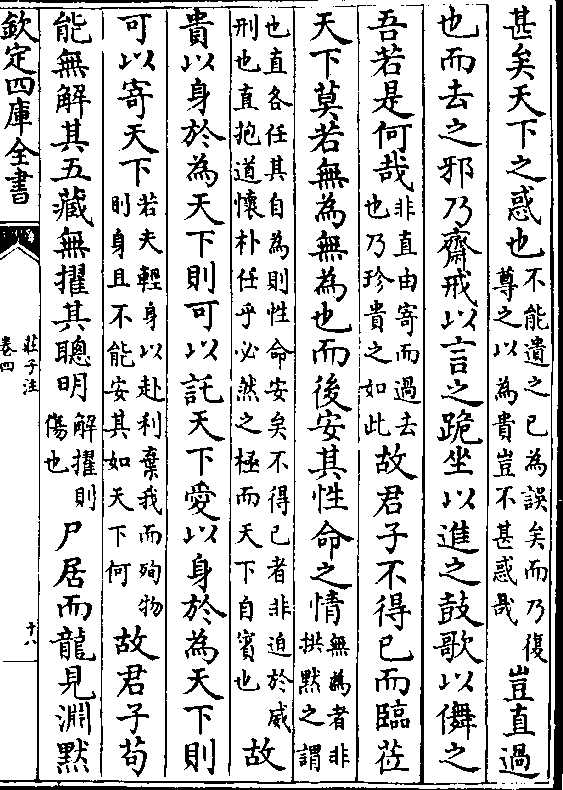 甚矣天下之惑也
不能遺之已為誤矣而乃復
尊之以為貴豈不甚惑哉
豈直過
也而去之邪乃齋戒以言之跪坐以進之鼓歌以儛之
吾若是何哉
非直由寄而過去
也乃珍貴之如此
故君子不得已而臨莅
天下莫若無為無為也而後安其性命之情
無為者非
拱默之謂
也直各任其自為則性命安矣不得已者非迫於威
刑也直抱道懷朴任乎必然之極而天下自賓也
故
貴以身於為天下則可以託天下愛以身於為天下則
可以寄天下
若夫輕身以赴利棄我而殉物
則身且不能安其如天下何
故君子苟
能無解其五藏無擢其聰明
解擢則
傷也
尸居而龍見淵默
欽定四庫全書
莊子注
卷四
十八